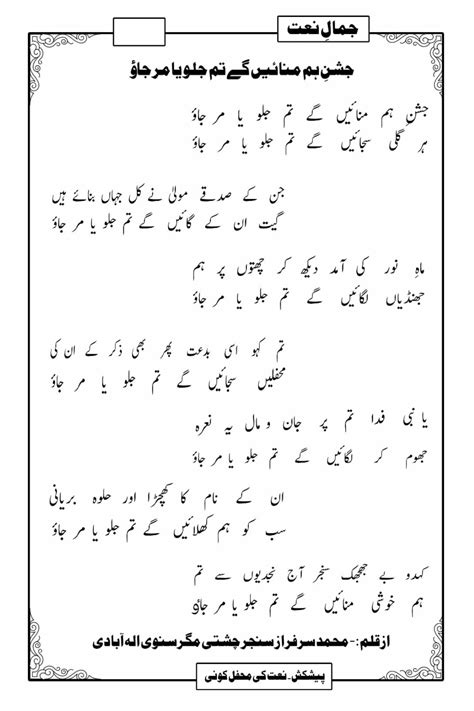 جمالِ نعت
جشن ہم منائیں گے تم جلو یا مر جاؤ
جشن ہم منائیں گے تم جلو یا مر جاؤ
ہر گلی سجائیں گے تم جلو یا مر جاؤ
جن کے صدقے مولیٰ نے کل جہاں بنائے ہیں
گیت ان کے گائیں گے تم جلو یا مر جاؤ
ماہِ نور کی آمد دیکھ کر چھتوں پر ہم
جھنڈیاں لگائیں گے تم جلو یا مر جاؤ
تم کہو اسی بدعت پھر بھی ذکر کے ان کی
محفلیں سجائیں گے تم جلو یا مر جاؤ
یا نبی فدا تم پر جان و مال یہ نعرہ
جھوم کر لگائیں گے تم جلو یا مر جاؤ
ان کے نام کا کھچڑا اور حلوہ بریانی
سب کو ہم کھلائیں گے تم جلو یا مر جاؤ
کہدو بے جھجھک سنجر آج نجدیوں سے تم
ہم خوشی منائیں گے تم جلو یا مر جاؤ
از قلم:- محمد سرفراز سنجر چشتی مگر سنوی الہ آبادی
پیشکش۔ نعت کی محفل کوئی